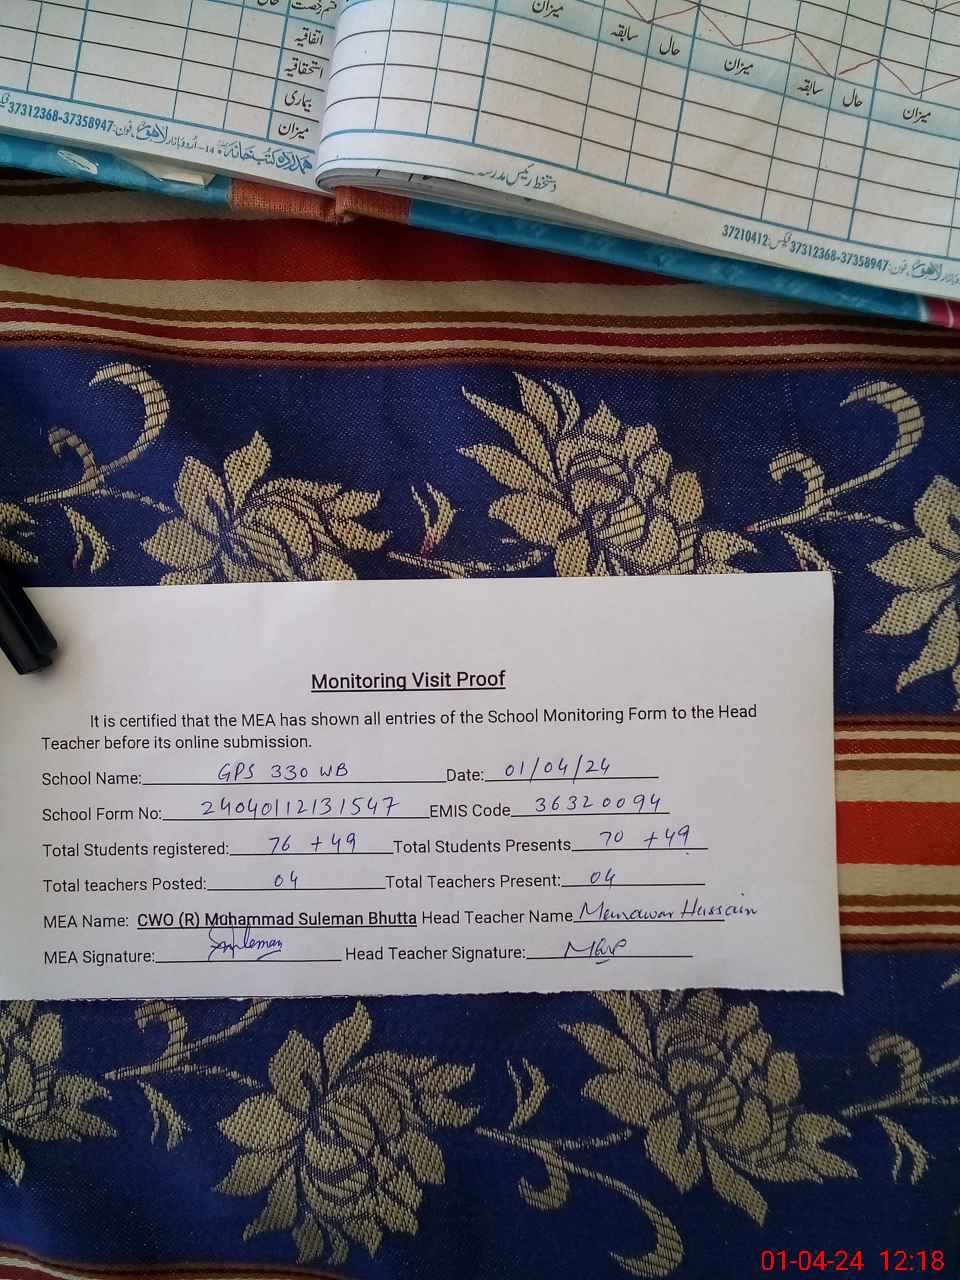 میزان
سابقہ
حال
میزان
سابقہ
حال
میزان
اتفاقیہ
استحقاقیہ
بیماری
میزان
37312368-37358947
دستخط رئیس مدرسہ
37210412 فیکس: 37312368-37358947
Monitoring Visit Proof
It is certified that the MEA has shown all entries of the School Monitoring Form to the Head
Teacher before its online submission.
School Name: GPS 330 WB Date: 01/04/24
School Form No: 24040112131547 EMIS Code 36320094
Total Students registered: 76 + 49 Total Students Presents 70 + 49
Total teachers Posted: 04 Total Teachers Present: 04
MEA Name: CWO (R) Muhammad Suleman Bhutta Head Teacher Name Munawar Hussain
MEA Signature: Suleman Head Teacher Signature:
01-04-24 12:18